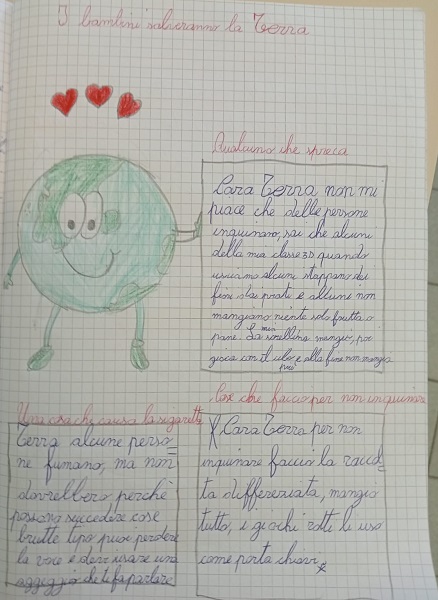 I bambini salveranno la Terra
Qualcuno che spreca
Cara Terra non mi
piace che delle persone
inquinano, sai che alcuni
della mia classe 3D quando
usciamo alcuni strappano dei
fiori dai prati e alcune non
mangiano niente solo frutta o
pane. La mia sorellina mangia, poi
gioca con il cibo e alla fine non mangia
più
Una cosa che causa la sigaretta
Terra alcune perso=
ne fumano, ma non
dovrebbero perchè
possono succedere cose
brutte tipo puoi perdere
la voce e devi usare una
aggeggio che ti fa parlare
Cose che faccio per non inquinare
Cara Terra per non
inquinare faccio la raccol=
ta differenziata, mangio
tutto, i giochi rotti li uso
come porta chiavi